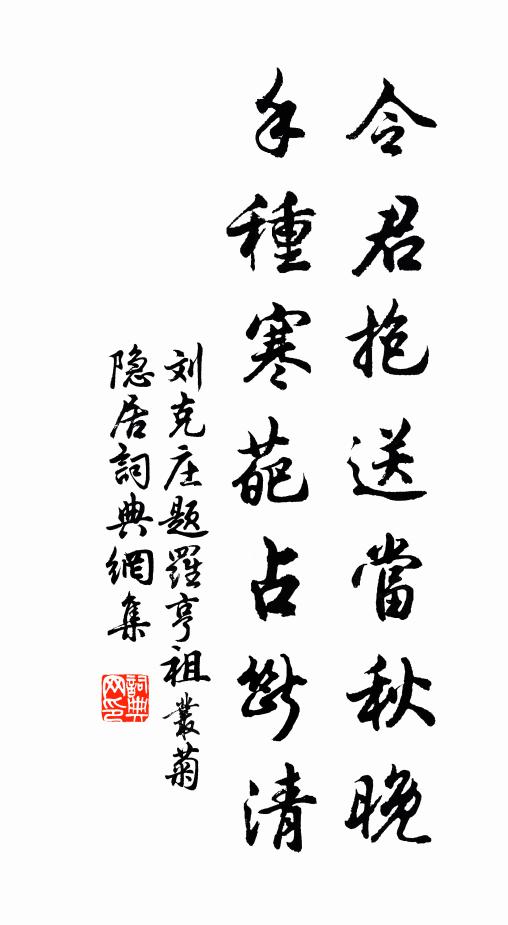 令君抱送當秋晚
手種寒葩占斷清
刘克庄题羅亨祖叢菊
隐居詞典網集
詞典网印